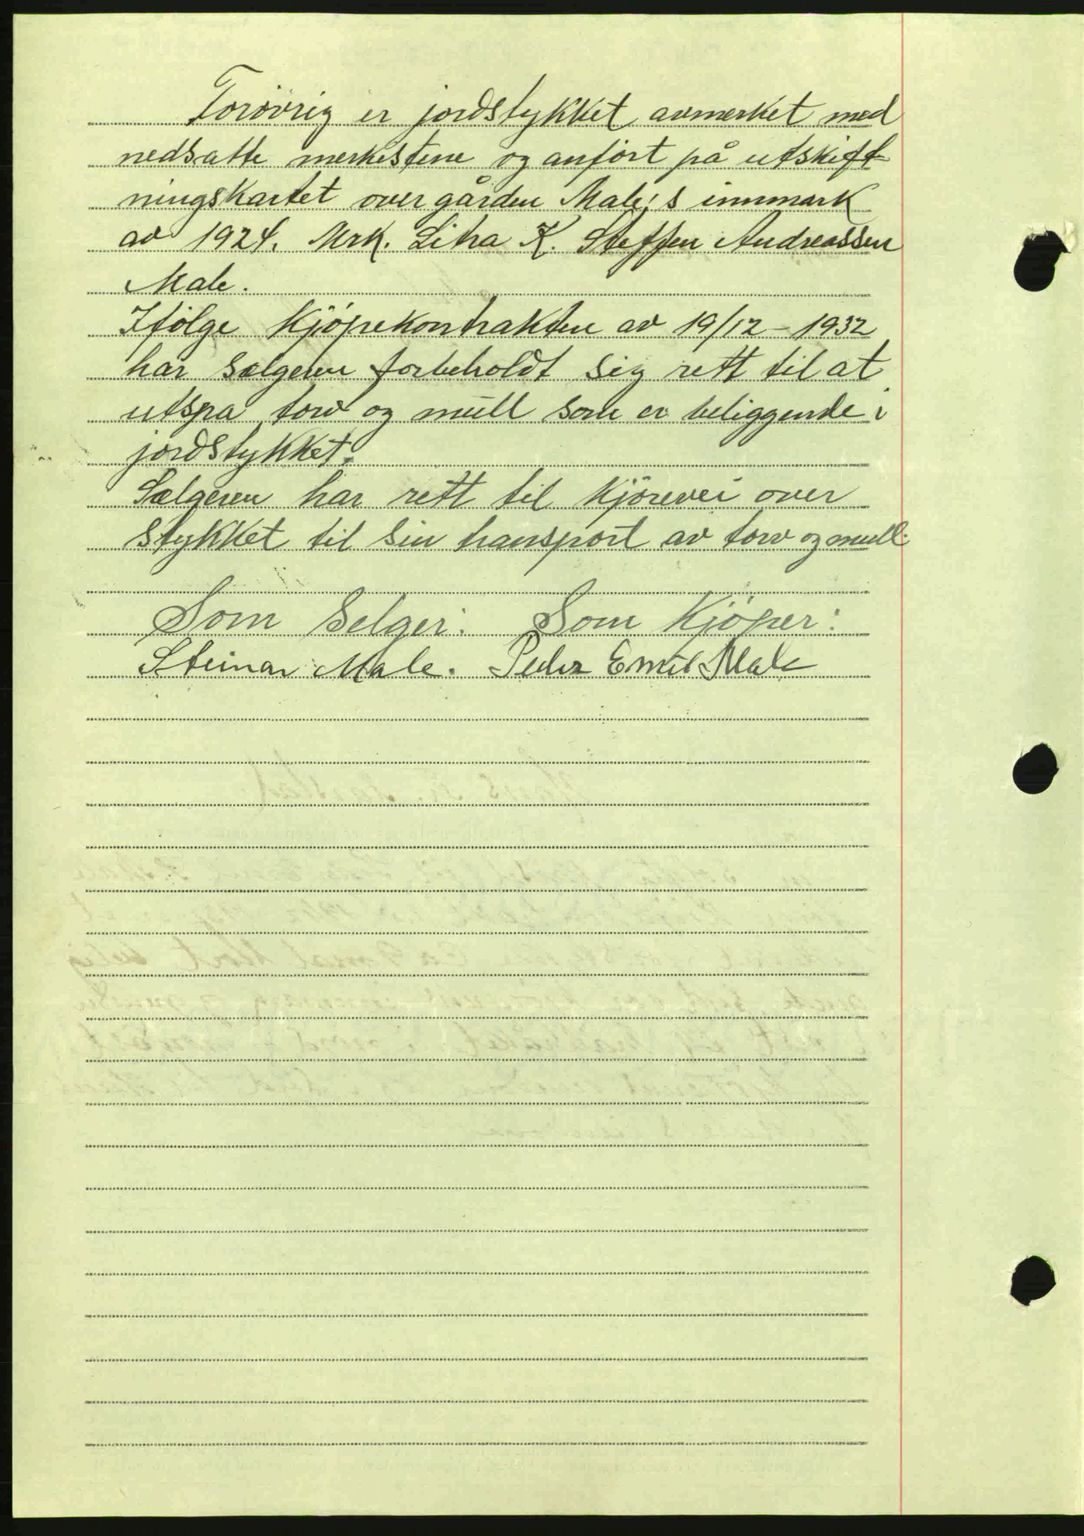 Forøvrig er jordstykket avmerket med
nedsatte merkestene og anført på utskift-
ningskartet over gården Male's innmark
av 1924. Mrk. Litra K. Steffen Andreassen
Male.
Ifølge Kjöpekontrakten av 19/12-1932
har sælgeren forbeholdt sig rett til at
utspa torv og mull som er beliggende i
jordstykket.
Sælgeren har rett til Kjörevei over
stykket til sin transport av torv og mull.
Som Selger: Som Kjöper:
Steinar Male. Peder Emil Male